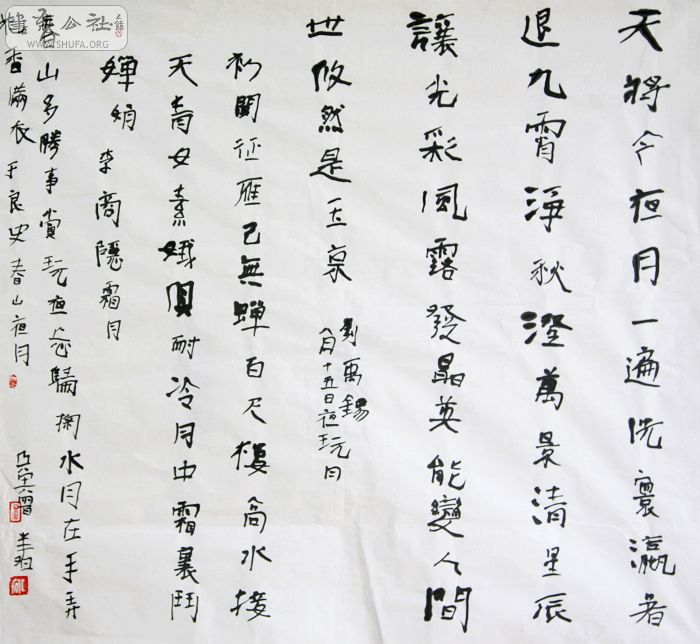 天將今夜月一遍洗寰瀛暑
退九霄淨秋澄萬景清星辰
讓光彩風露發晶英能變人間
世攸然是玉京
劉禹錫
八月十五日夜玩月
初聞征雁已無蟬百尺樓高水接
天青女素娥俱耐冷月中霜裏鬥
嬋娟 李商隱霜月
春山多勝事賞玩夜忘歸掬水月在手弄
花香滿衣 于良史春山夜月
公社
WWW.ISHUFA.ORG